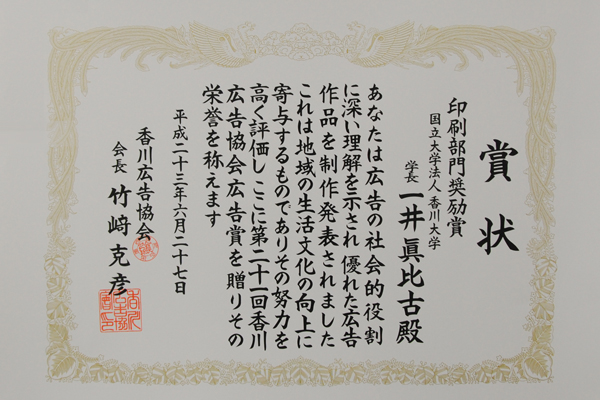 賞状
印刷部門奨励賞
国立大学法人香川大学
学長 一井眞比古殿
あなたは広告の社会的役割
に深い理解を示され 優れた広告
作品を制作発表されました
これは地域の生活文化の向上に
寄与するものでありその努力を
高く評価し ここに第二十一回香川
広告協会広告賞を贈りその
栄誉を称えます
平成二十三年六月二十七日
香川広告協会
会長 竹﨑克彦